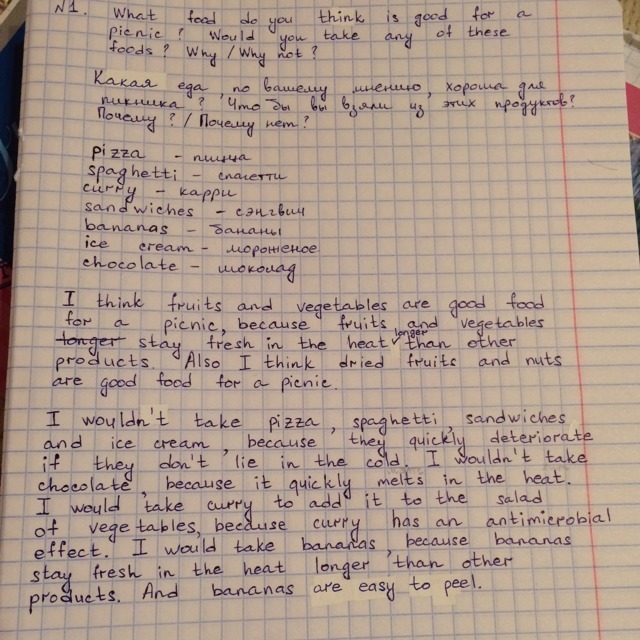 N1. What food do you think is good for a
picnic? Would you take any of these
foods? Why / Why not?
Какая еда, по вашему мнению, хороша для
пикника? Что бы вы взяли из этих продуктов?
Почему? / Почему нет?
pizza - пицца
spaghetti - спагетти
curry - карри
sandwiches - сэнгвич
bananas - бананы
ice cream - мороженое
chocolate - шоколад
I think fruits and vegetables are good food
for a picnic, because fruits and vegetables
longer stay fresh in the heat longer than other
products. Also I think dried fruits and nuts
are good food for a picnic.
I wouldn't take pizza, spaghetti, sandwiches
and ice cream, because they quickly deteriorate
if they don't lie in the cold. I wouldn't take
chocolate, because it quickly melts in the heat.
I would take curry to add it to the salad
of vegetables, because curry has an antimicrobial
effect. I would take bananas, because bananas
stay fresh in the heat longer than other
products. And bananas are easy to peel.